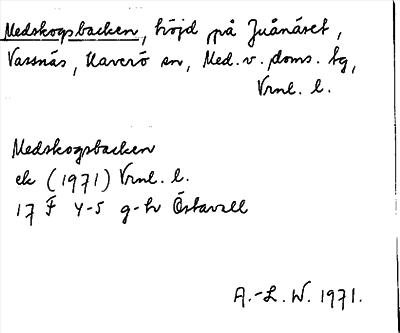 Medskogsbacken, höjd på Juånäset,
Vassnäs, Haverö sn, Med. v. doms. tg,
Vrnl. l.
Medskogsbacken
ek (1971) Vrnl. l.
17 F 4-5 g-hv Östavall
A.-L. W. 1971.